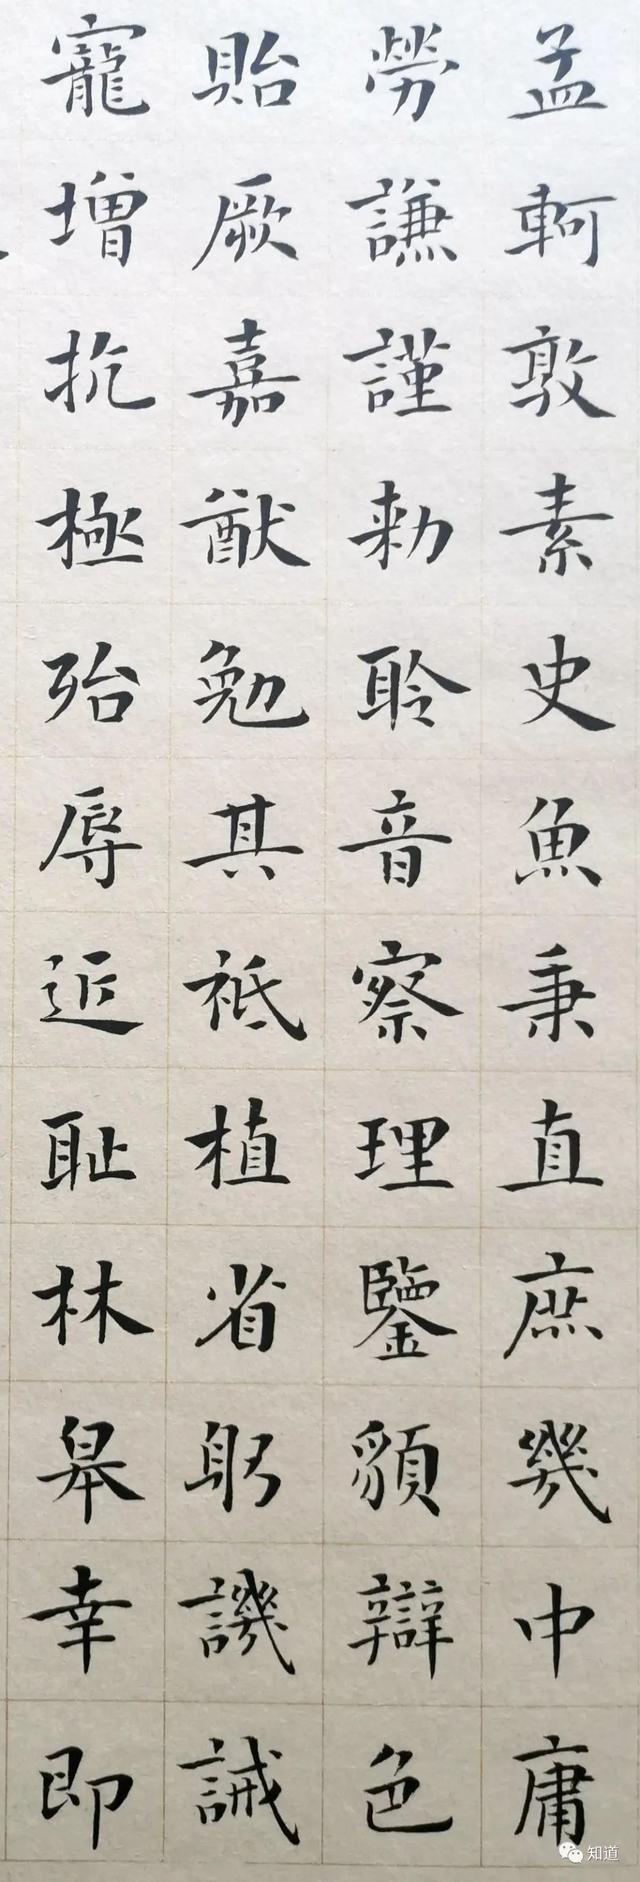 孟軻敦素史魚秉直庶幾中庸
勞謙謹勅聆音察理鑒貌辯色
貽厥嘉猷勉其祗植省躬譏誡
寵增抗極殆辱近恥林皋幸即
知道